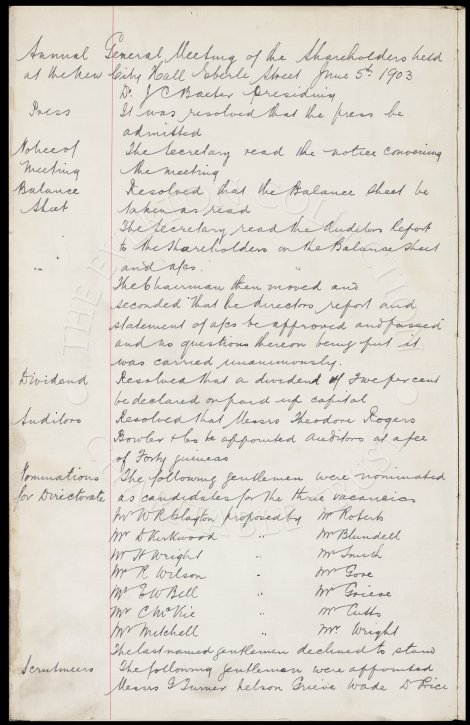 Annual General Meeting of the Shareholders held
at the New City Hall Eberle Street June 5th 1903
Dr. J C Baxter Presiding
Press It was resolved that the press be
admitted
Notice of The Secretary read the notice convening
Meeting the meeting
Balance Resolved that the Balance Sheet be
Sheet taken as read
The Secretary read the Auditors Report
to the Shareholders on the Balance Sheet
and a/cs.
The Chairman then moved and
seconded that he directors report and
statement of a/cs be approved and passed
and as questions thereon being put it
was carried unanimously.
Dividend Resolved that a dividend of Five per cent
be declared on paid up capital
Auditors Resolved that Messrs Theodore Rogers
Bowler & Co be appointed auditors at a fee
of Forty guineas
Nominations The following gentlemen were nominated
for Directorate as candidates for the three vacancies
Mr W R Clayton proposed by Mr Roberts
Mr D Kirkwood " Mr Blundell
Mr H Wright " Mr Smith
Mr R Wilson " Mr Gore
Mr E W Bell " Mr Grieve
Mr C McVie " Mr Cutts
Mr Mitchell " Mr Wright
The last named gentlemen declined to stand
Scrutineers The following gentleman were appointed
Messrs G Turner Nelson Grieve Wade D Price
THE EVERTON COLLECTION